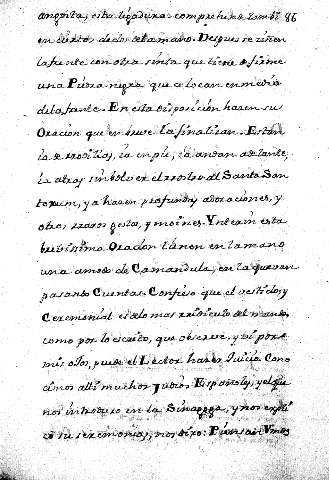 angosta, esta ligadura comprehende tambn. 86
en ciertos dedos de la mano. Despues se ciñen
la frente con otra sinta que tiene firme
una Piedra negra que colocan en medio
de la frente. En esta disposicion hazen su
Oracion que en breve la finalizan. Estan
ia de rrodillas, ia en pie, ia andan adelante,
ia atras sin bolver el rostro al Santa San-
torum, ya hazen profundas adoraciones, y
otros rraros gestos, y moines. Y
brevissima Oracion tienen en la mano
una a modo de Camandula, en la que van
pasando Cuentas. Confieso que el vestido, y
Ceremonial es de lo mas rridiculo del mundo,
como por lo escrito, que observe, y vi por
mis ojos, puede el Lector hazer Juicio. Cono-
cimos alli muchos Judios Españoles, y el que
nos introdujo en la Sinagoga, y nos expli
co su ceremonias, nos dixo: Piensan Vmds